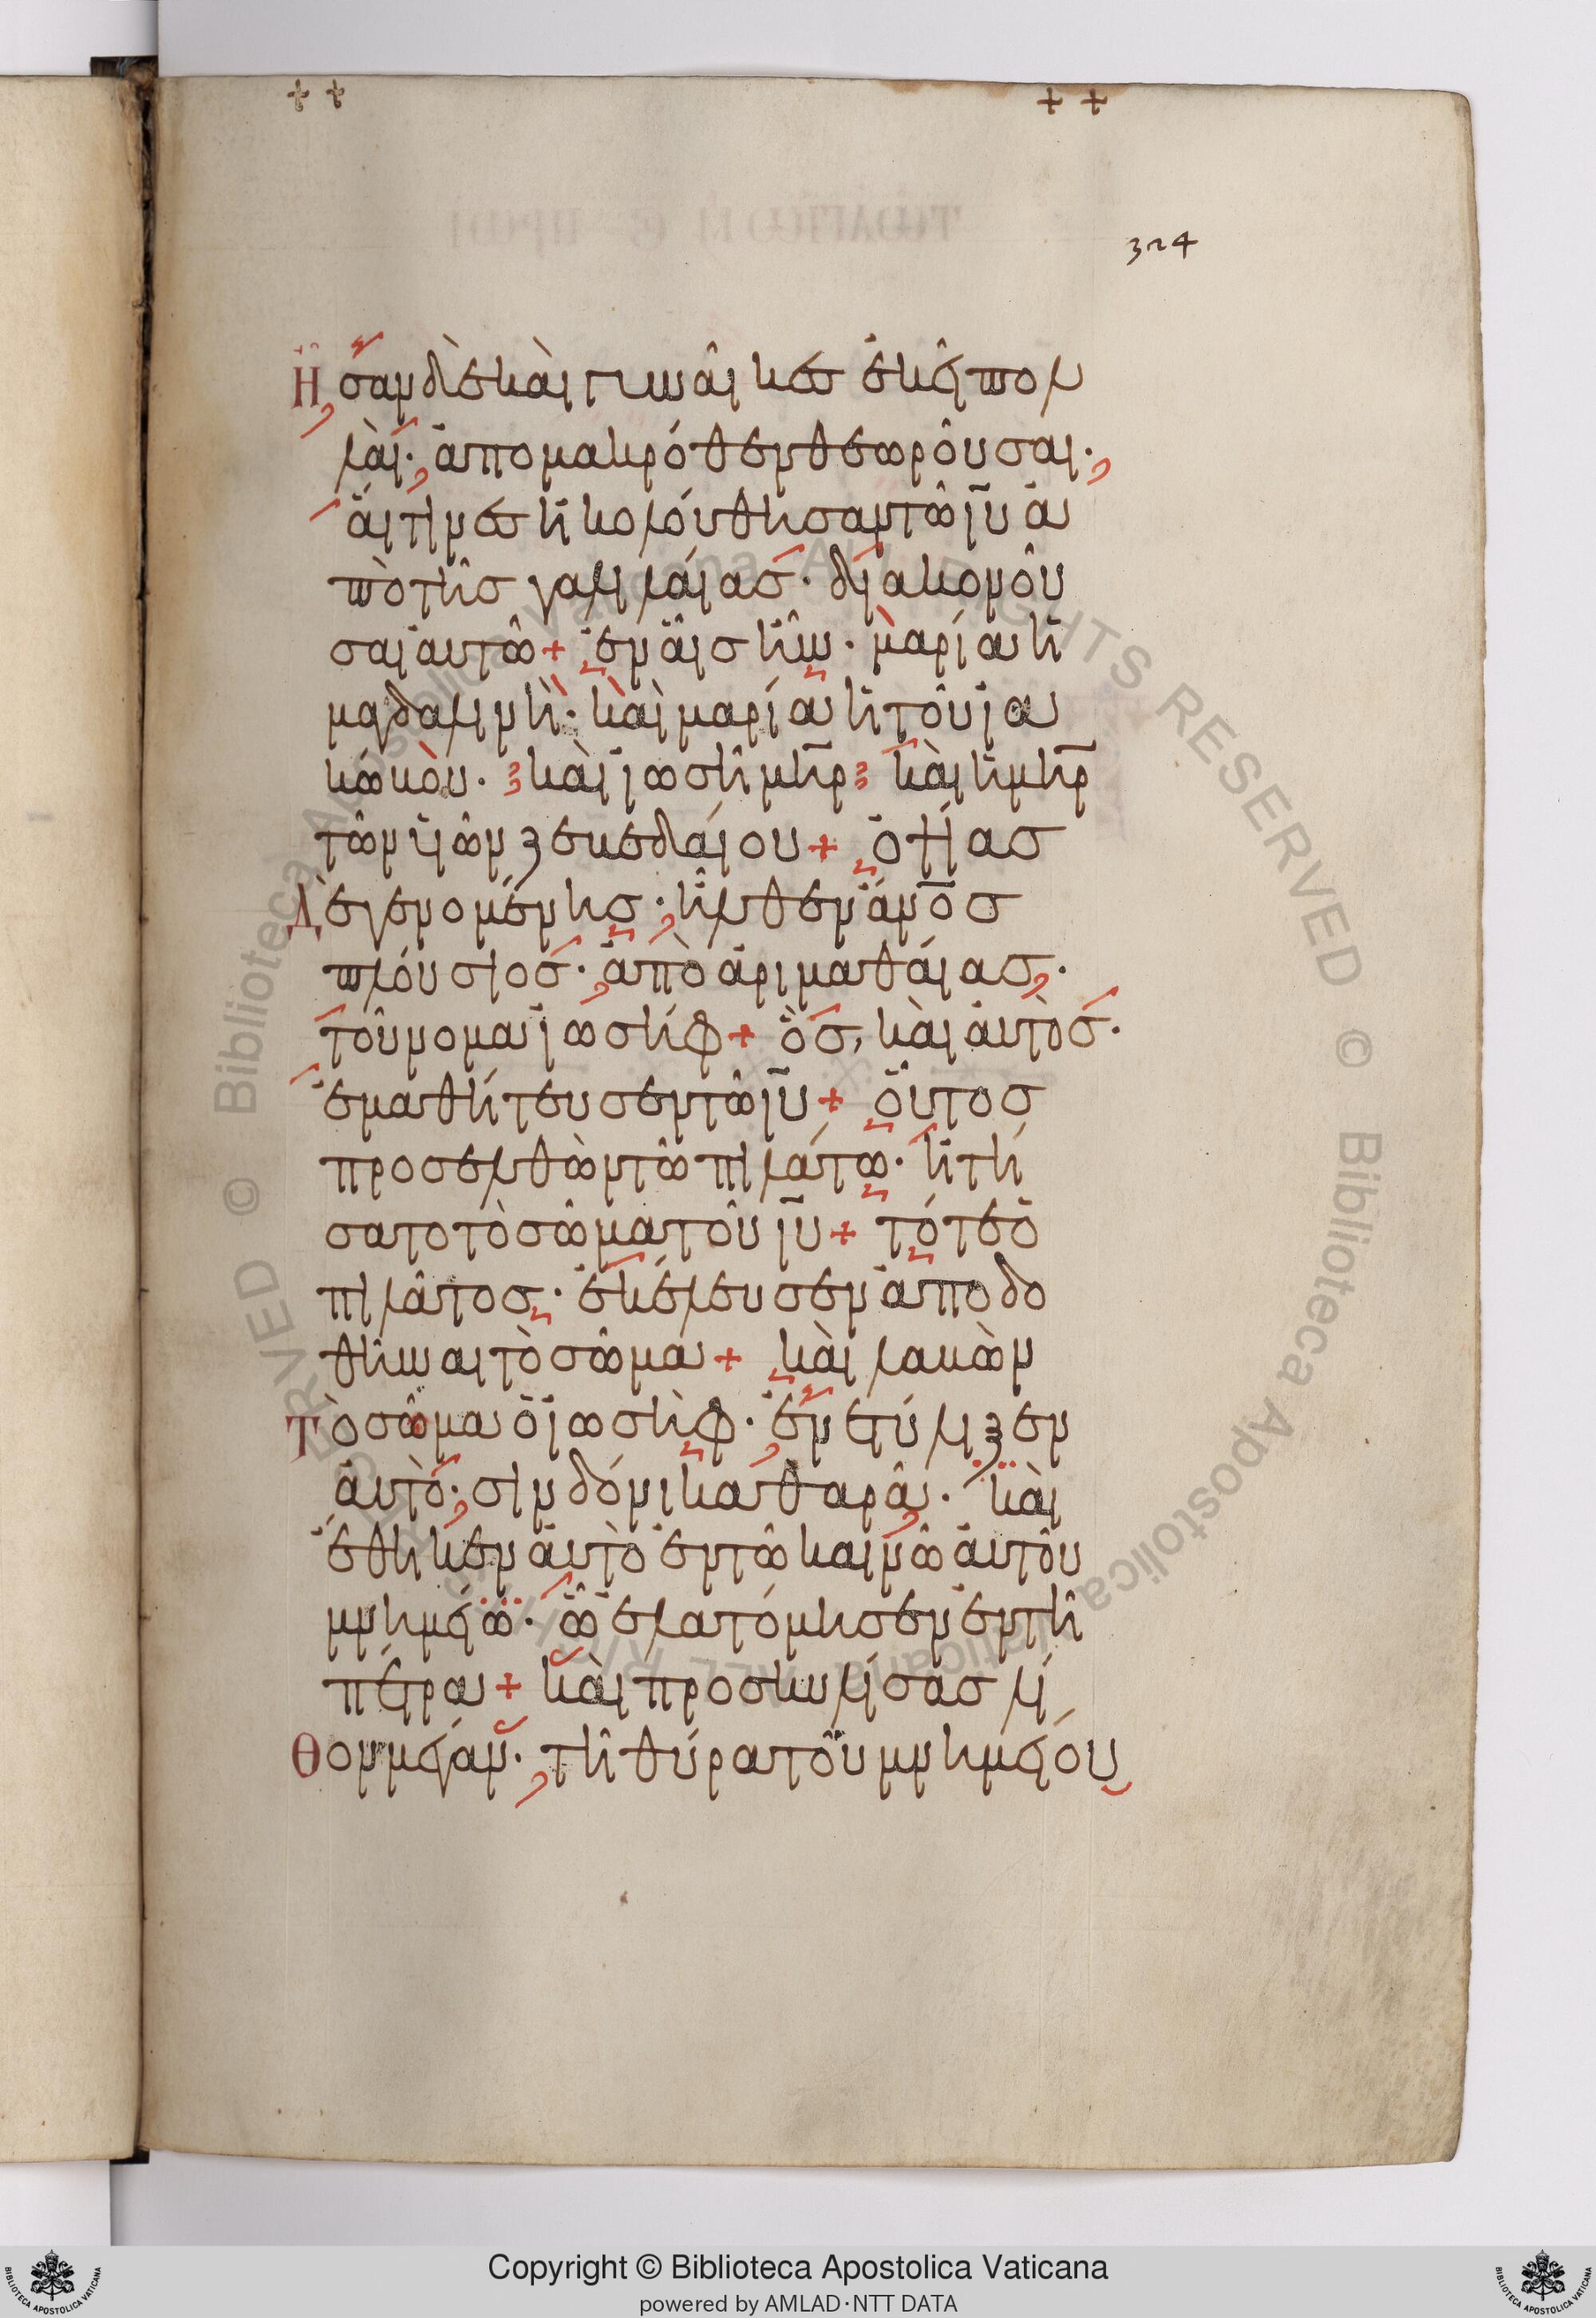 + + + +
324
Ἦσαν δὲ καὶ γυναῖκες ἐκεῖ πολ
λαὶ· ἀπὸ μακρόθεν θεωροῦσαι·
αἵτινες ἠκολούθησαν τῶ ιυ ἀ
πὸ τῆς γαλιλαίας· διακονοῦ
σαι αὐτῶ + ἐν αἷς ἦν· μαρία ἡ
μαγδαλινὴ· καὶ μαρία ἡ τοῦ ϊα
κώβου· καὶ ϊωσῆ μηρ καὶ ἡ μηρ
τῶν ϋἱῶν ζεβεδαίου + ὀψίας
Δὲ γενομένης· ἦλθεν ἀνος
πλούσιος· ἀπὸ ἀριμαθαίας·
τοῦνομα ϊωσήφ + ὃς, καὶ αὐτὸς·
ἐμαθήτευσεν τῶ ιυ + οὗτος
προσελθὼν τῶ πιλάτω· ἠτή
σατο τὸ σῶμα τοῦ ιυ + τότε ὁ
πιλᾶτος· ἐκέλευσεν ἀποδο
θῆναι τὸ σῶμα + καὶ λαβὼν
Τὸ σῶμα ὁ ϊωσὴφ· ἐνετύλιξεν
αὐτὸ· σινδόνι καθαρᾶ· καὶ
ἔθηκεν αὐτὸ ἐν τῶ καινῶ αὐτοῦ
μνημείω· ὧ ἐλατόμησεν ἐν τῆ
πέτρα + καὶ προσκυλίσας λί
Θον μέγαν· τῆ θύρα τοῦ μνημείου
Copyright © Biblioteca Apostolica Vaticana
powered by AMLAD·NTT DATA